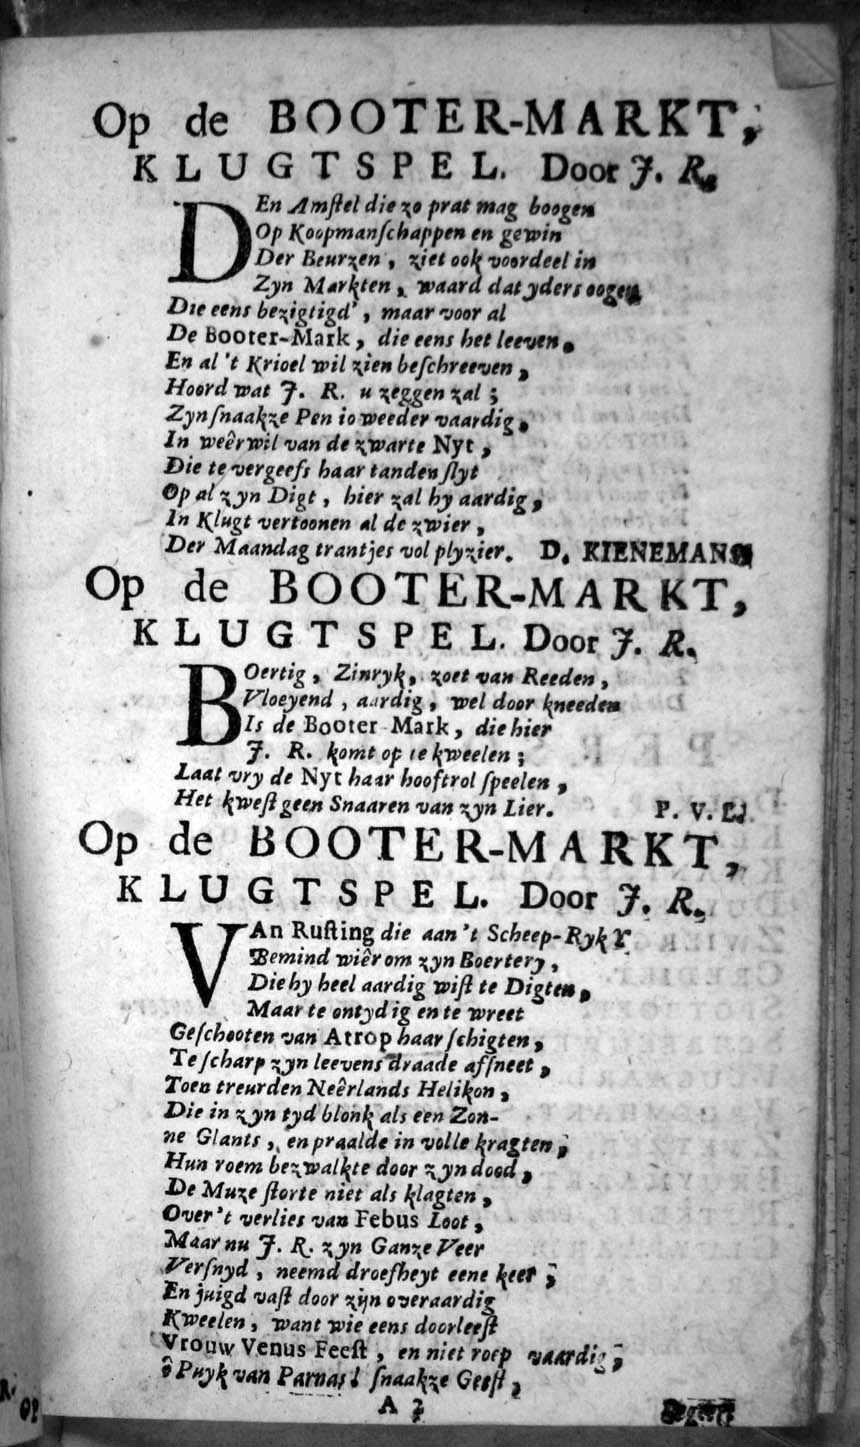 Op de BOOTER-MARKT,
KLUGTSPEL. Door J. R.
DEn Amſtel die zo prat mag boogen
Op Koopmanſchappen en gewin
Der Beurzen, ziet ook voordeel in
Zyn Markten, waard dat yders oogen
Die eens bezigtigd', maar voor al
De Booter-Mark, die eens het leeven,
En al 't Krioel wil zien beſchreeven,
Hoord wat J. R. u zeggen zal;
Zyn ſnaakze Pen io weeder vaardig,
In weêrwil van de zwarte Nyt,
Die te vergeefs haar tanden ſlyt
Op al zyn Digt, hier zal hy aardig,
In Klugt vertoonen al de zwier,
Der Maandag trantjes vol plyzier. D. KIENEMANS
Op de BOOTER-MARKT,
KLUGTSPEL. Door J. R.
BOertig, Zinryk, zoet van Reeden,
Vloeyend, aardig, wel door kneeden
Is de Booter-Mark, die hier
J. R. komt op te kweelen;
Laat vry de Nyt haar hooftrol ſpeelen,
Het kweſt geen Snaaren van zyn Lier. P. V.
Op de BOOTER-MARKT,
KLUGTSPEL. Door J. R.
VAn Ruſting die aan 't Scheep-Ryk Y
Bemind wiêr om zyn Boertery,
Die hy heel aardig wiſt te Digten,
Maar te ontydig en te wreet
Geſchooten van Atrop haar ſchigten,
Te ſcharp zyn leevens draade afſneet,
Toen treurden Neêrlands Helikon,
Die in zyn tyd blonk als een Zon-
ne Glants, en praalde in volle kragten,
Hun roem bezwalkte door zyn dood,
De Muze ſtorte niet als klagten,
Over 't verlies van Febus Loot,
Maar nu J. R. zyn Ganze Veer
Verſnyd, neemd droefheyt eene keer;
En juigd vaſt door zijn overaardig
Kweelen, want wie eens doorleeſt
Vrouw Venus Feeſt, en niet roep vaardig,
ô Puyk van Parnas! ſnaakze Geeſt,
A 3